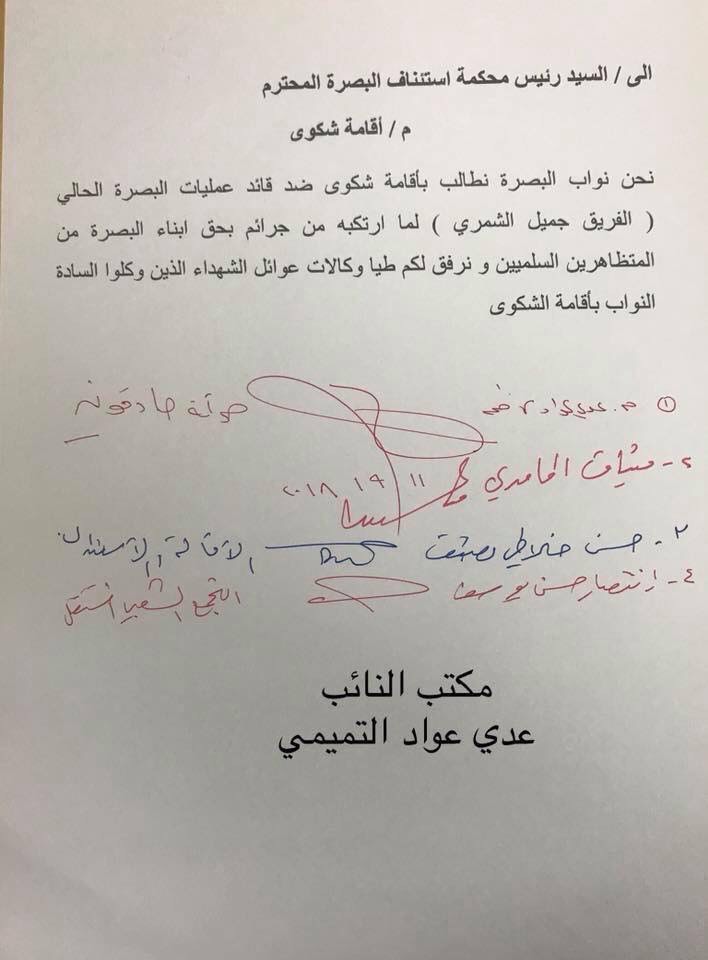 الى / السيد رئيس محكمة استئناف البصرة المحترم
م / أقامة شكوى
نحن نواب البصرة نطالب بأقامة شكوى ضد قائد عمليات البصرة الحالي
( الفريق جميل الشمري ) لما ارتكبه من جرائم بحق ابناء البصرة من
المتظاهرين السلميين و نرفق لكم طيا وكالات عوائل الشهداء الذين وكلوا السادة
النواب بأقامة الشكوى
① صادقون
٢- الحامدي ١١ ٩ ٢٠١٨
٣- حسن
٤- انتصار حسن التجمع
مكتب النائب
عدي عواد التميمي